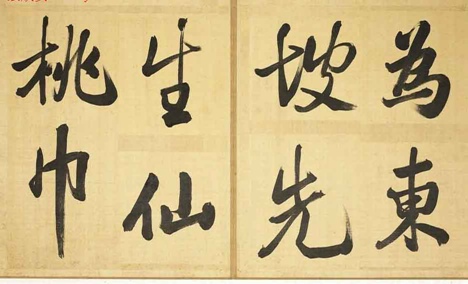 為東
坡先
生仙
桃巾